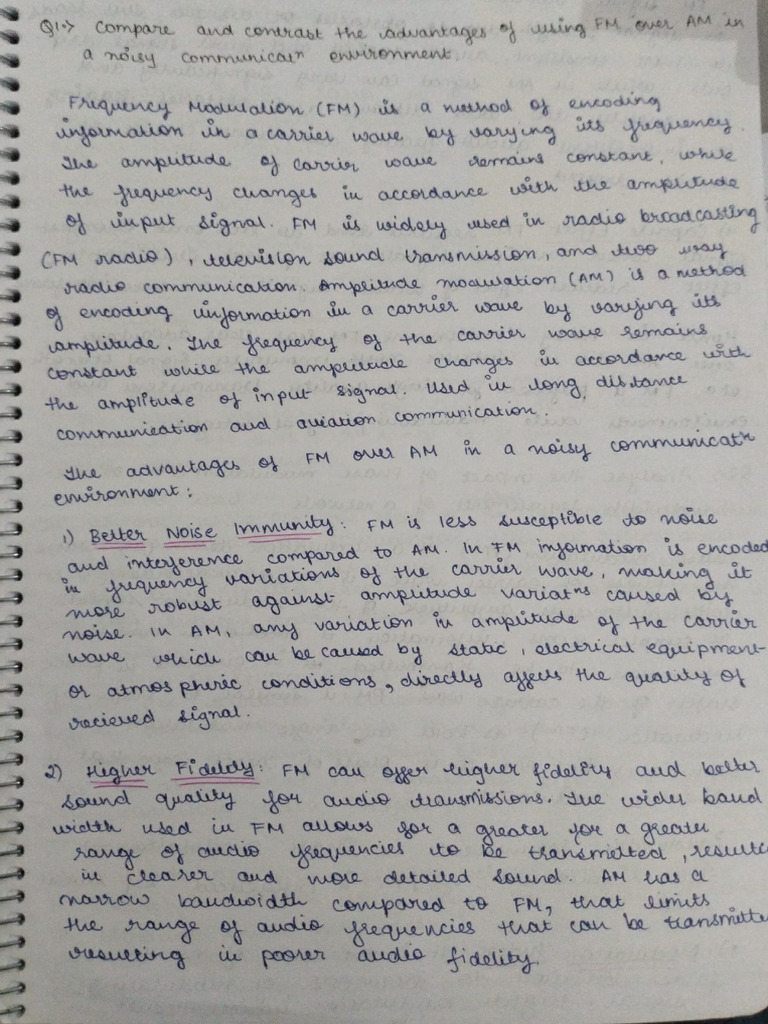 Q1.> Compare and contrast the advantages of using FM over AM in
a noisy communicatn environment.
Frequency Modulation (FM) is a method of encoding
information in a carrier wave by varying its frequency.
The amplitude of carrier wave remains constant, while
the frequency changes in accordance with the amplitude
of input signal. FM is widely used in radio broadcasting
(FM radio), television sound transmission, and two way
radio communication. Amplitude modulation (AM) is a method
of encoding information in a carrier wave by varying its
amplitude. The frequency of the carrier wave remains
constant while the amplitude changes in accordance with
the amplitude of input signal. Used in long distance
communication and aviation communication.
The advantages of FM over AM in a noisy communicatn
environment:
1) Better Noise Immunity: FM is less susceptible to noise
and interference compared to AM. In FM information is encoded
in frequency variations of the carrier wave, making it
more robust against amplitude variatns caused by
noise. In AM, any variation in amplitude of the carrier
wave which can be caused by static, electrical equipment
or atmospheric conditions, directly affects the quality of
recieved signal.
2) Higher Fidelity: FM can offer higher fidelity and better
sound quality for audio transmissions. The wider band
width used in FM allows for a greater for a greater
range of audio frequencies to be transmitted, result
in clearer and more detailed sound. AM has a
narrow bandwidth compared to FM, that limits
the range of audio frequencies that can be transmitte
resulting in poorer audio fidelity.